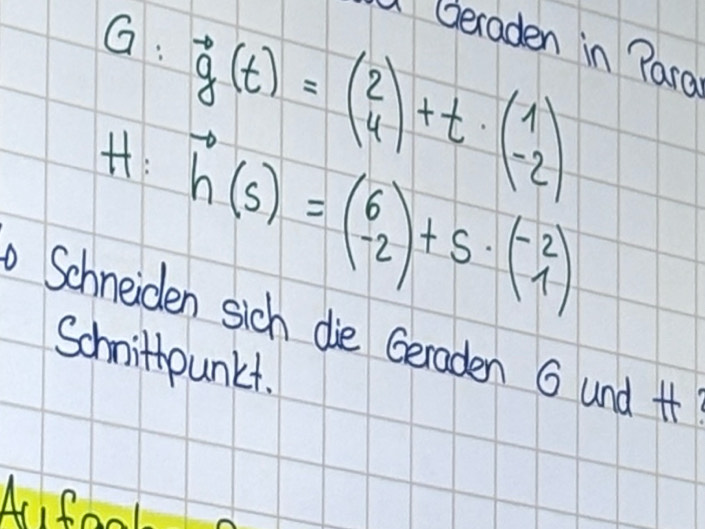 Geraden in
G: g⃗(t) = (2 4) + t · (1 -2)
H: h⃗(s) = (6 -2) + s · (-2 1)
Schneiden sich die Geraden G und H?
Schnittpunkt.